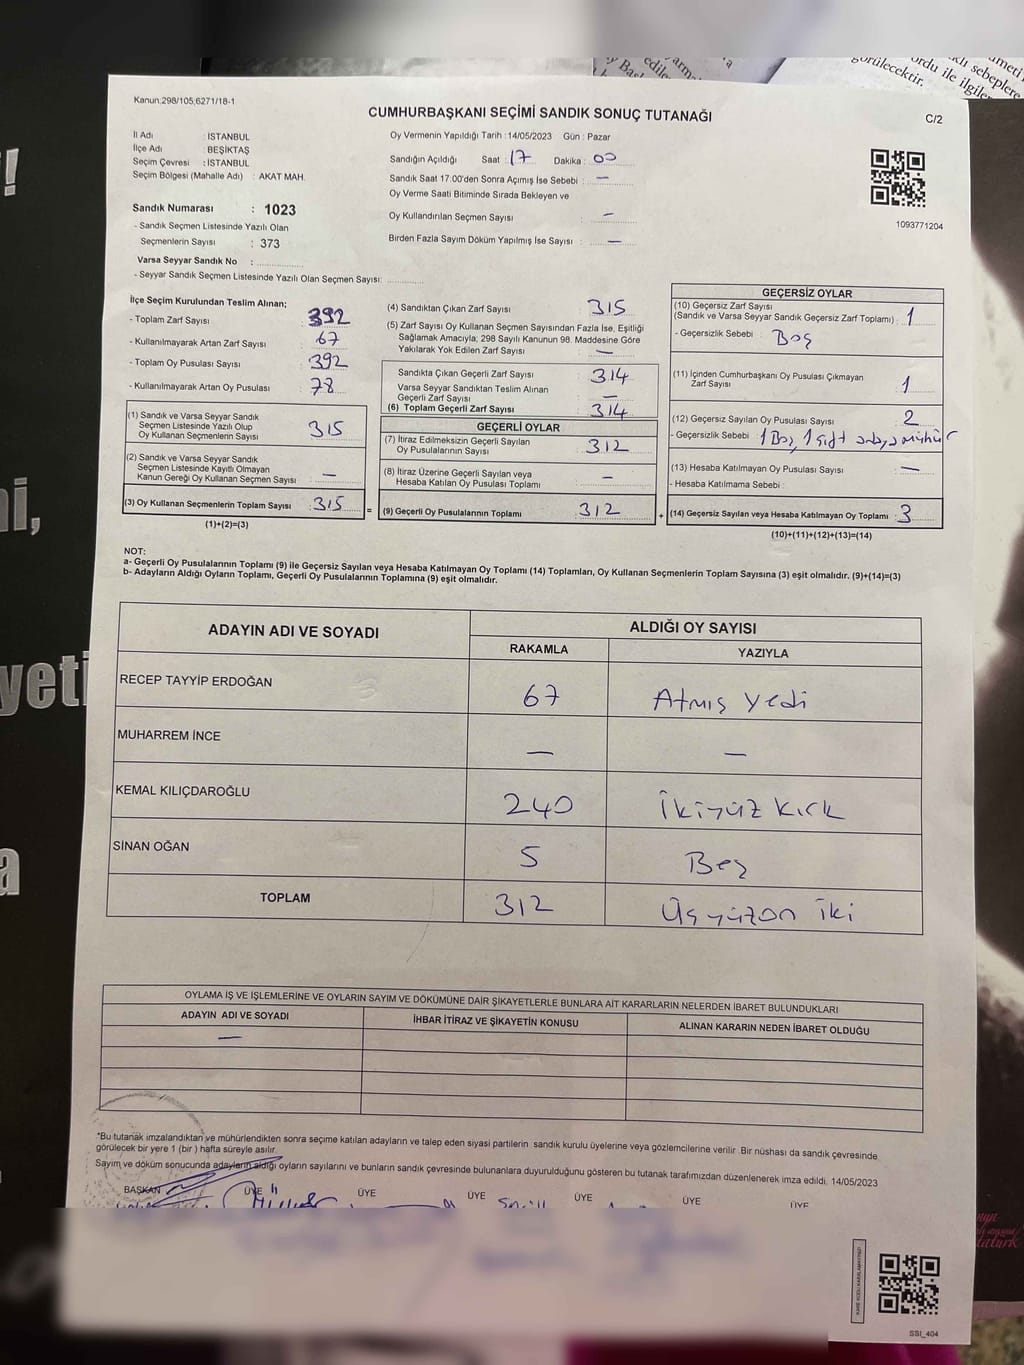 Kanun:298/105;6271/18-1
CUMHURBAŞKANI SEÇİMİ SANDIK SONUÇ TUTANAĞI
C/2
İl Adı : İSTANBUL
İlçe Adı : BEŞİKTAŞ
Seçim Çevresi : İSTANBUL
Seçim Bölgesi (Mahalle Adı) : AKAT MAH.
Sandık Numarası : 1023
- Sandık Seçmen Listesinde Yazılı Olan
Seçmenlerin Sayısı : 373
Varsa Seyyar Sandık No :
- Seyyar Sandık Seçmen Listesinde Yazılı Olan Seçmen Sayısı:
Oy Vermenin Yapıldığı Tarih : 14/05/2023 Gün : Pazar
Sandığın Açıldığı Saat : 17 Dakika : 00
Sandık Saat 17:00'den Sonra Açımış İse Sebebi : —
Oy Verme Saati Bitiminde Sırada Bekleyen ve
Oy Kullandırılan Seçmen Sayısı : —
Birden Fazla Sayım Döküm Yapılmış İse Sayısı : —
1093771204
İlçe Seçim Kurulundan Teslim Alınan;
- Toplam Zarf Sayısı : 392
- Kullanılmayarak Artan Zarf Sayısı : 67
- Toplam Oy Pusulası Sayısı : 392
- Kullanılmayarak Artan Oy Pusulası : 78
(1) Sandık ve Varsa Seyyar Sandık
Seçmen Listesinde Yazılı Olup
Oy Kullanan Seçmenlerin Sayısı : 315
(2) Sandık ve Varsa Seyyar Sandık
Seçmen Listesinde Kayıtlı Olmayan
Kanun Gereği Oy Kullanan Seçmen Sayısı : —
(3) Oy Kullanan Seçmenlerin Toplam Sayısı : 315
(1)+(2)=(3)
=
(4) Sandıktan Çıkan Zarf Sayısı : 315
(5) Zarf Sayısı Oy Kullanan Seçmen Sayısından Fazla İse, Eşitliği
Sağlamak Amacıyla; 298 Sayılı Kanunun 98. Maddesine Göre
Yakılarak Yok Edilen Zarf Sayısı : —
Sandıkta Çıkan Geçerli Zarf Sayısı : 314
Varsa Seyyar Sandıktan Teslim Alınan
Geçerli Zarf Sayısı : —
(6) Toplam Geçerli Zarf Sayısı : 314
GEÇERLİ OYLAR
(7) İtiraz Edilmeksizin Geçerli Sayılan
Oy Pusulalarının Sayısı : 312
(8) İtiraz Üzerine Geçerli Sayılan veya
Hesaba Katılan Oy Pusulası Toplamı : —
(9) Geçerli Oy Pusulalarının Toplamı : 312
+
GEÇERSİZ OYLAR
(10) Geçersiz Zarf Sayısı
(Sandık ve Varsa Seyyar Sandık Geçersiz Zarf Toplamı) : 1
- Geçersizlik Sebebi : Boş
(11) İçinden Cumhurbaşkanı Oy Pusulası Çıkmayan
Zarf Sayısı : 1
(12) Geçersiz Sayılan Oy Pusulası Sayısı : 2
- Geçersizlik Sebebi : 1 Boş, 1 çift mühür
(13) Hesaba Katılmayan Oy Pusulası Sayısı : —
- Hesaba Katılmama Sebebi :
(14) Geçersiz Sayılan veya Hesaba Katılmayan Oy Toplamı : 3
(10)+(11)+(12)+(13)=(14)
NOT:
a- Geçerli Oy Pusulalarının Toplamı (9) ile Geçersiz Sayılan veya Hesaba Katılmayan Oy Toplamı (14) Toplamları, Oy Kullanan Seçmenlerin Toplam Sayısına (3) eşit olmalıdır. (9)+(14)=(3)
b- Adayların Aldığı Oyların Toplamı, Geçerli Oy Pusulalarının Toplamına (9) eşit olmalıdır.
ADAYIN ADI VE SOYADI
ALDIĞI OY SAYISI
RAKAMLA YAZIYLA
RECEP TAYYİP ERDOĞAN 67 Atmış Yedi
MUHARREM İNCE — —
KEMAL KILIÇDAROĞLU 240 İkiyüz Kırk
SİNAN OĞAN 5 Beş
TOPLAM 312 Üçyüzon İki
OYLAMA İŞ VE İŞLEMLERİNE VE OYLARIN SAYIM VE DÖKÜMÜNE DAİR ŞİKAYETLERLE BUNLARA AİT KARARLARIN NELERDEN İBARET BULUNDUKLARI
ADAYIN ADI VE SOYADI İHBAR İTİRAZ VE ŞİKAYETİN KONUSU ALINAN KARARIN NEDEN İBARET OLDUĞU
—
*Bu tutanak imzalandıktan ve mühürlendikten sonra seçime katılan adayların ve talep eden siyasi partilerin sandık kurulu üyelerine veya gözlemcilerine verilir. Bir nüshası da sandık çevresinde
görülecek bir yere 1 (bir ) hafta süreyle asılır.
Sayım ve döküm sonucunda adayların aldığı oyların sayılarını ve bunların sandık çevresinde bulunanlara duyurulduğunu gösteren bu tutanak tarafımızdan düzenlenerek imza edildi. 14/05/2023
BAŞKAN ÜYE ÜYE ÜYE ÜYE ÜYE ÜYE
SSI_404
görülecektir.
ordu ile ilgile
yeti